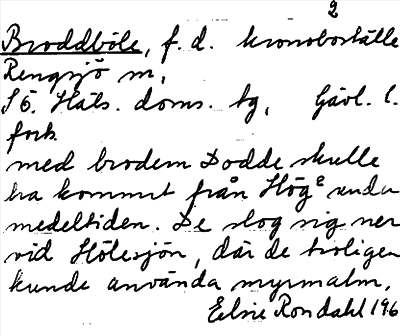 2
Broddböle, f. d. kronoboställe
Rengsjö sn,
Sö. Häls. doms. tg, Gävl. l.
forts.
med brodern Dodde skulle
ha kommit från Hög² under
medeltiden. De slog sig ner
vid Hölesjön, där de troligen
kunde använda myrmalm.
Elsie Rondahl 196